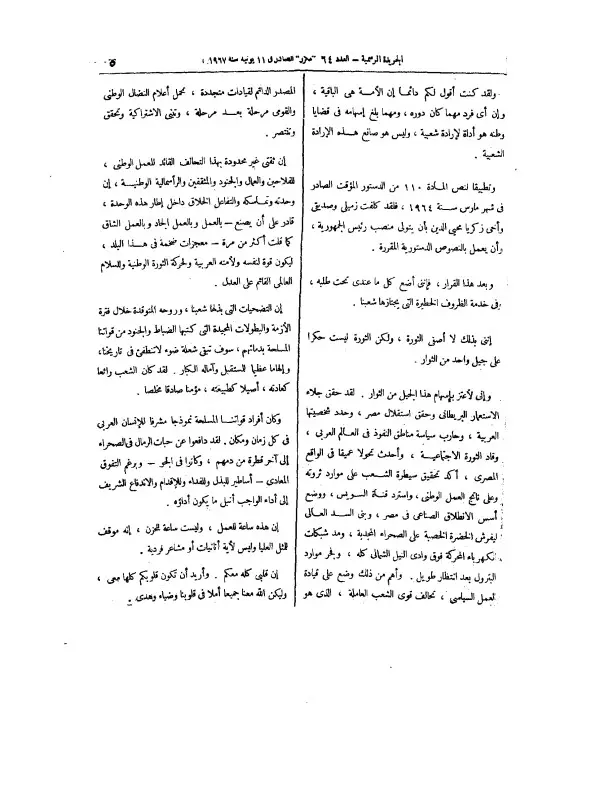 الجريدة الرسمية – العدد ٦٤ "مكرر" الصادر فى ١١ يونيه سنة ١٩٦٧
٥
ولقد كنت أقول لكم دائما إن الأمة هى الباقية ،
وإن أى فرد مهما كان دوره ، ومهما بلغ إسهامه فى قضايا
وطنه هو أداة لإرادة شعبية ، وليس هو صانع هذه الإرادة
الشعبية .
وتطبيقا لنص المادة ١١٠ من الدستور المؤقت الصادر
فى شهر مارس سنة ١٩٦٤ ، فلقد كلفت زميلى وصديقى
وأخى زكريا محيى الدين بأن يتولى منصب رئيس الجمهورية ،
وأن يعمل بالنصوص الدستورية المقررة .
وبعد هذا القرار ، فإننى أضع كل ما عندى تحت طلبه ،
فى خدمة الظروف الخطيرة التى يجتازها شعبنا .
إننى بذلك لا أصفى الثورة ، ولكن الثورة ليست حكرا
على جيل واحد من الثوار .
وإنى لأعتز بإسهام هذا الجيل من الثوار . لقد حقق جلاء
الاستعمار البريطانى وحقق استقلال مصر ، وحدد شخصيتها
العربية ، وحارب سياسة مناطق النفوذ فى العالم العربى ،
وقاد الثورة الاجتماعية ، وأحدث تحولا عميقا فى الواقع
المصرى ، أكد تحقيق سيطرة الشعب على موارد ثروته
وعلى ناتج العمل الوطنى ، واسترد قناة السويس ، ووضع
أسس الانطلاق الصناعى فى مصر ، وبنى السد العالى
ليفرش الخضرة الخصبة على الصحراء المجدبة ، ومد شبكات
الكهرباء المحركة فوق وادى النيل الشمالى كله ، وفجر موارد
البترول بعد انتظار طويل . وأهم من ذلك وضع على قيادة
العمل السياسى ، تحالف قوى الشعب العاملة ، الذى هو
المصدر الدائم لقيادات متجددة ، تحمل أعلام النضال الوطنى
والقومى مرحلة بعد مرحلة ، وتبنى الاشتراكية وتحقق
وتنتصر .
إن ثقتى غير محدودة بهذا التحالف القائد للعمل الوطنى ،
للفلاحين والعمال والجنود والمثقفين والرأسمالية الوطنية ، إن
وحدته وتماسكه والتفاعل الخلاق داخل إطار هذه الوحدة ،
قادر على أن يصنع – بالعمل وبالعمل الجاد وبالعمل الشاق
كما قلت أكثر من مرة – معجزات ضخمة فى هذا البلد ،
ليكون قوة لنفسه ولأمته العربية ولحركة الثورة الوطنية وللسلام
العالمى القائم على العدل .
إن التضحيات التى بذلها شعبنا ، وروحه المتوقدة خلال فترة
الأزمة والبطولات المجيدة التى كتبها الضباط والجنود من قواتنا
المسلحة بدمائهم ، سوف تبقى شعلة ضوء لا تنطفئ فى تاريخنا ،
وإلهاما عظيما للمستقبل وآماله الكبار . لقد كان الشعب رائعا
كعادته ، أصيلا كطبيعته ، مؤمنا صادقا مخلصا .
وكان أفراد قواتنا المسلحة نموذجا مشرفا للإنسان العربى
فى كل زمان ومكان . لقد دافعوا عن حبات الرمال فى الصحراء
إلى آخر قطرة من دمهم ، وكانوا فى الجو – وبرغم التفوق
المعادى – أساطير للبذل وللفداء وللإقدام والاندفاع للشريف
إلى أداء الواجب أنبل ما يكون أداؤه .
إن هذه ساعة للعمل ، وليست ساعة للحزن ، إنه موقف
للمثل العليا وليس لأية أنانيات أو مشاعر فردية .
إن قلبى كله معكم . وأريد أن تكون قلوبكم كلها معى ،
وليكن الله معنا جميعا أملا فى قلوبنا وضياء وهدى .